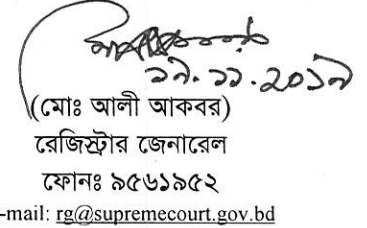 (মোঃ আলী আকবর)
রেজিস্ট্রার জেনারেল
ফোনঃ ৯৫৬১৯৫২
-mail: rg@supremecourt.gov.bd